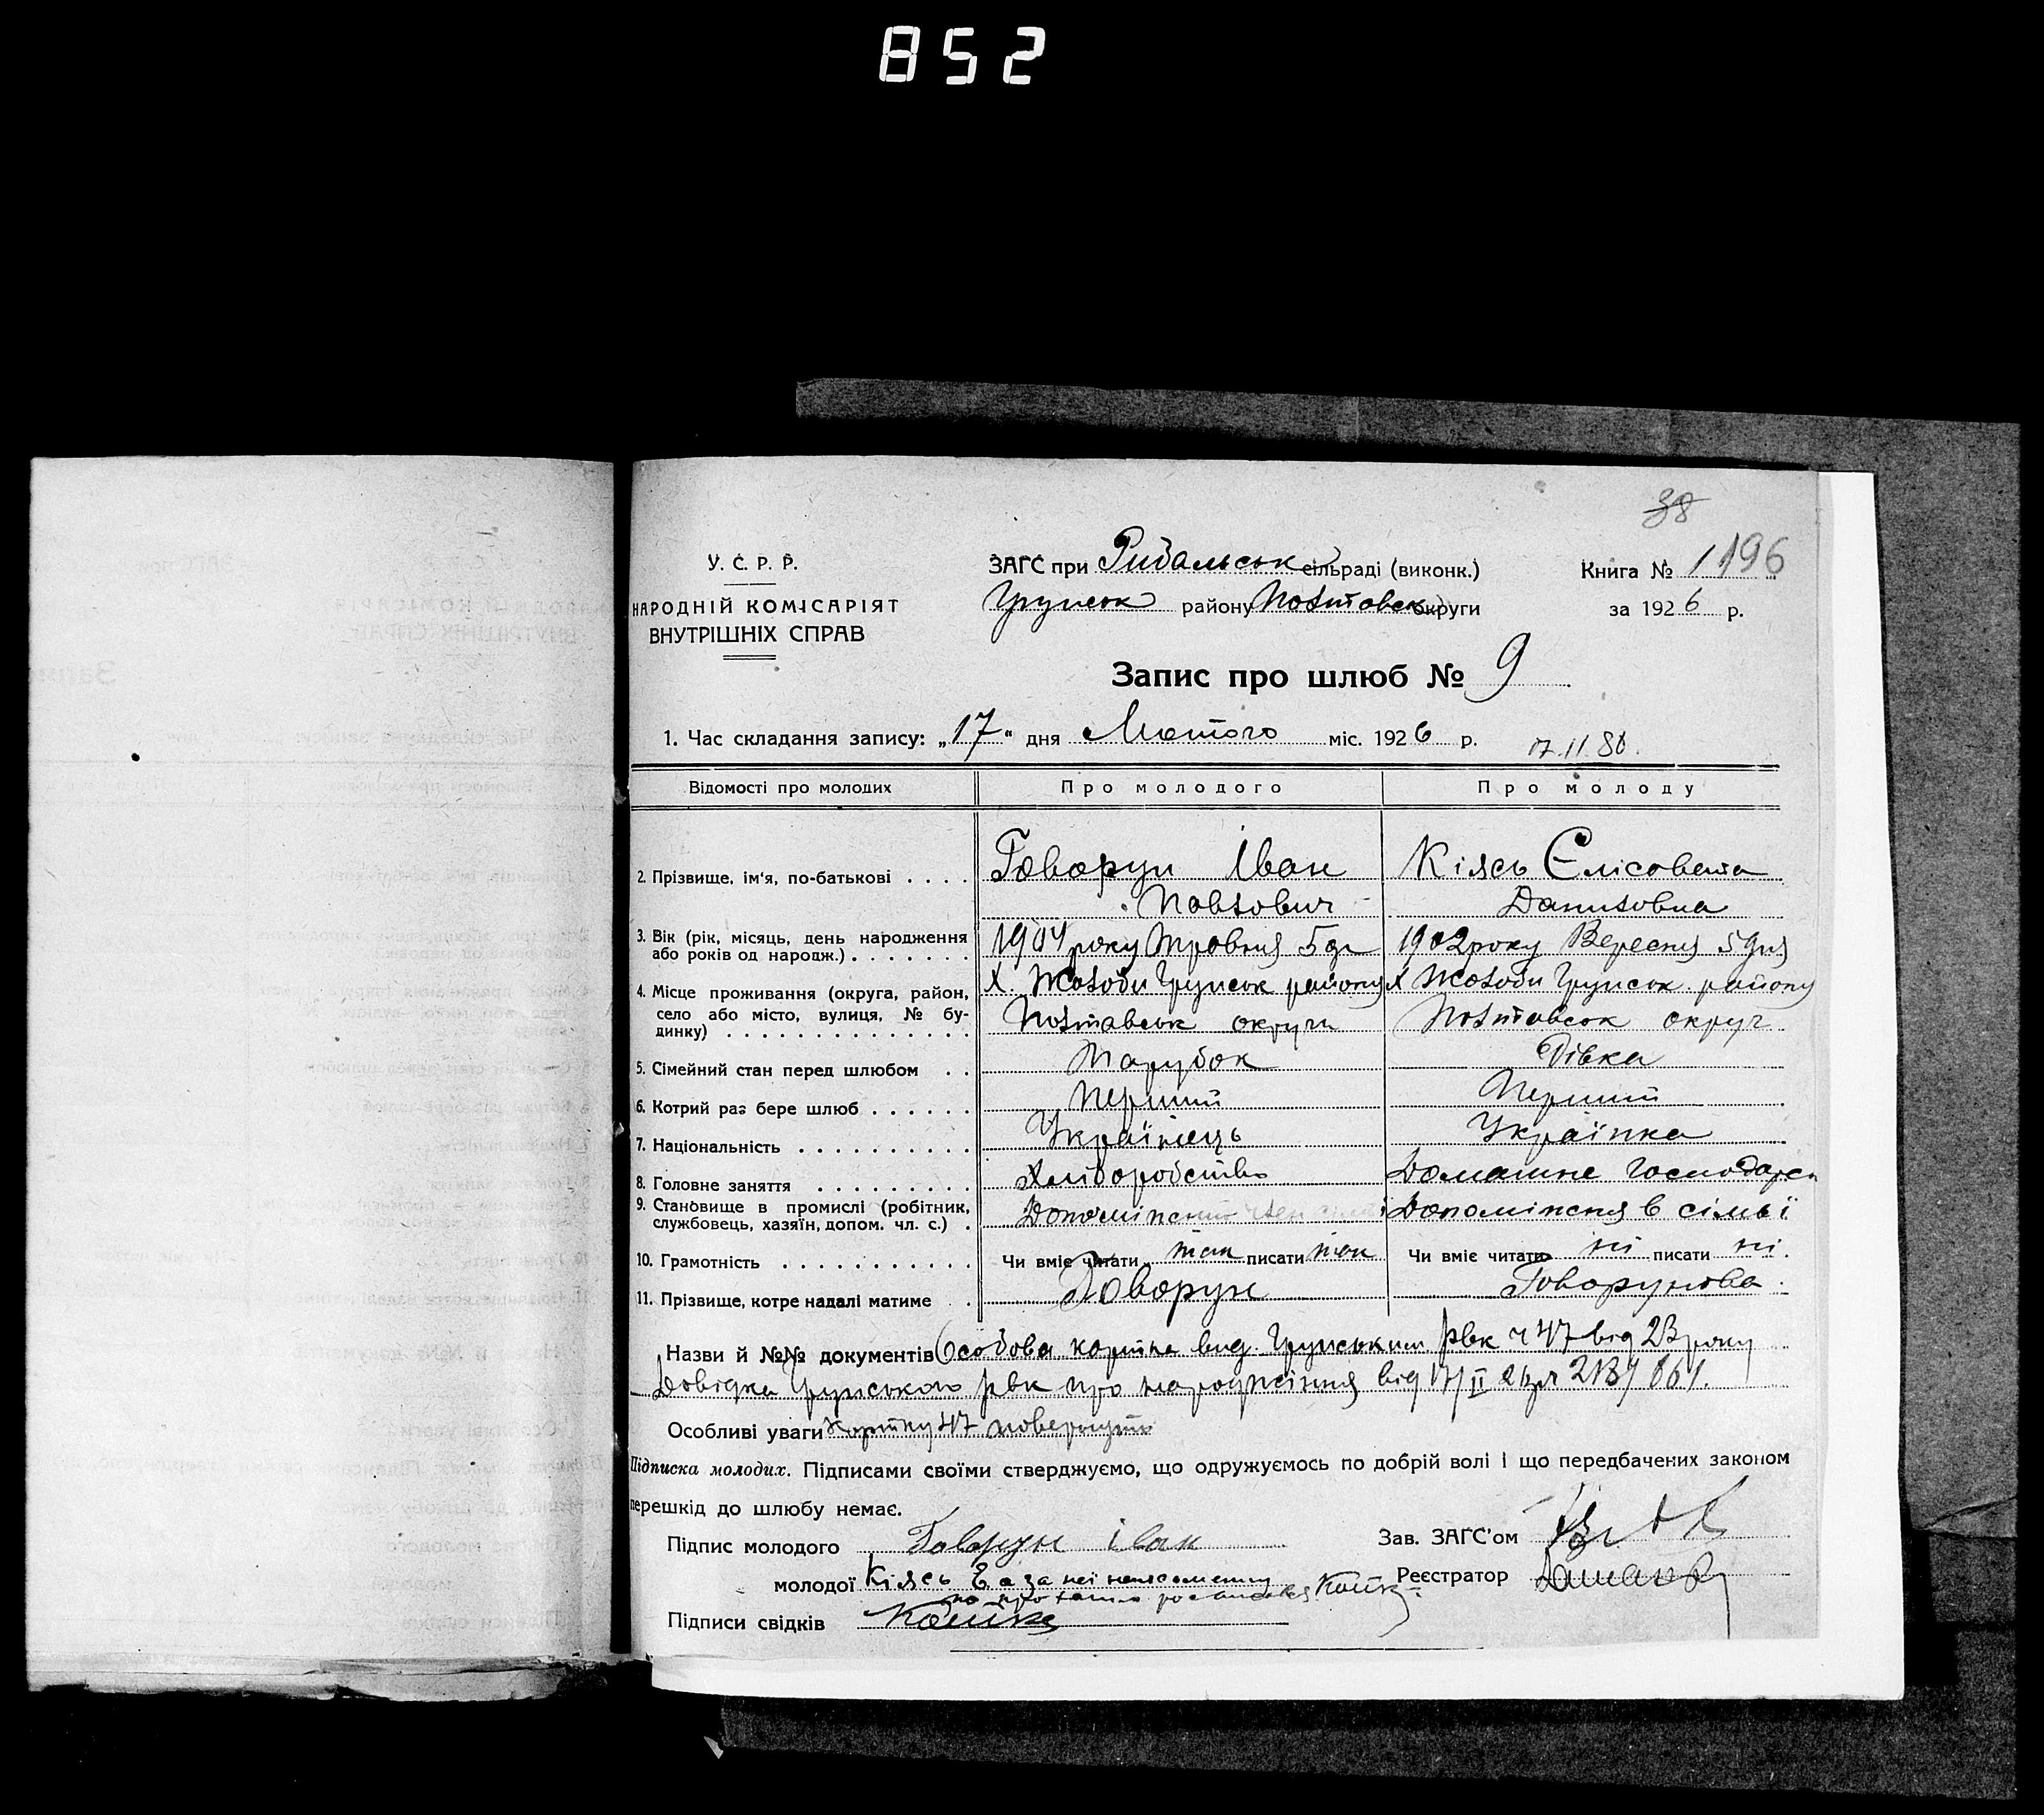 852
38
У. С. Р. Р.
НАРОДНІЙ КОМІСАРІЯТ
ВНУТРІШНІХ СПРАВ
ЗАГС при Рибальськ сільраді (виконк.)
Грунськ району Полтавськ округи
Книга № 1 196
за 1926 р.
Запис про шлюб № 9
1. Час складання запису: „17“ дня Лютого міс. 1926 р.
Відомості про молодих Про молодого Про молоду
2. Прізвище, ім'я, по-батькові . . . . Говорун Іван Кіясь Єлісовета
Павлович Даниловна
3. Вік (рік, місяць, день народження або років од народж.) . . . . . . . 1904 року Травня 5 дн 1902 року Вересня 5 дня
4. Місце проживання (округа, район, село або місто, вулиця, № будинку) . . . . . . . . . . . . . . Х. Жолоби Грунськ району Х Жолоби Грунськ району
Полтавськ округи Полтавськ округ
5. Сімейний стан перед шлюбом . . Парубок Дівка
6. Котрий раз бере шлюб . . . . . . Перший Перший
7. Національність . . . . . . . . . . Українець Українка
8. Головне заняття . . . . . . . . . Хліборобство Домашнє господарс
9. Становище в промислі (робітник, службовець, хазяїн, допом. чл. с.) . член сім Допоміжня в сімьї
10. Грамотність . . . . . . . . . . . Чи вміє читати так писати так Чи вміє читати ні писати ні.
11. Прізвище, котре надалі матиме . Говорун Говорунова
Назви й №№ документів Особова картка вид. Грунським Рвк ч 47 від 23 року
Довідка Грунського Рвк про народжіння від 17/II 26 р
Особливі уваги Картку 47 повернуто
Підписка молодих. Підписами своїми стверджуємо, що одружуємось по добрій волі і що передбачених законом
перешкід до шлюбу немає.
Підпис молодого Говорун Іван Зав. ЗАГС'ом
молодої Кіясь Є а за неї неписьменну Реєстратор
Підписи свідків